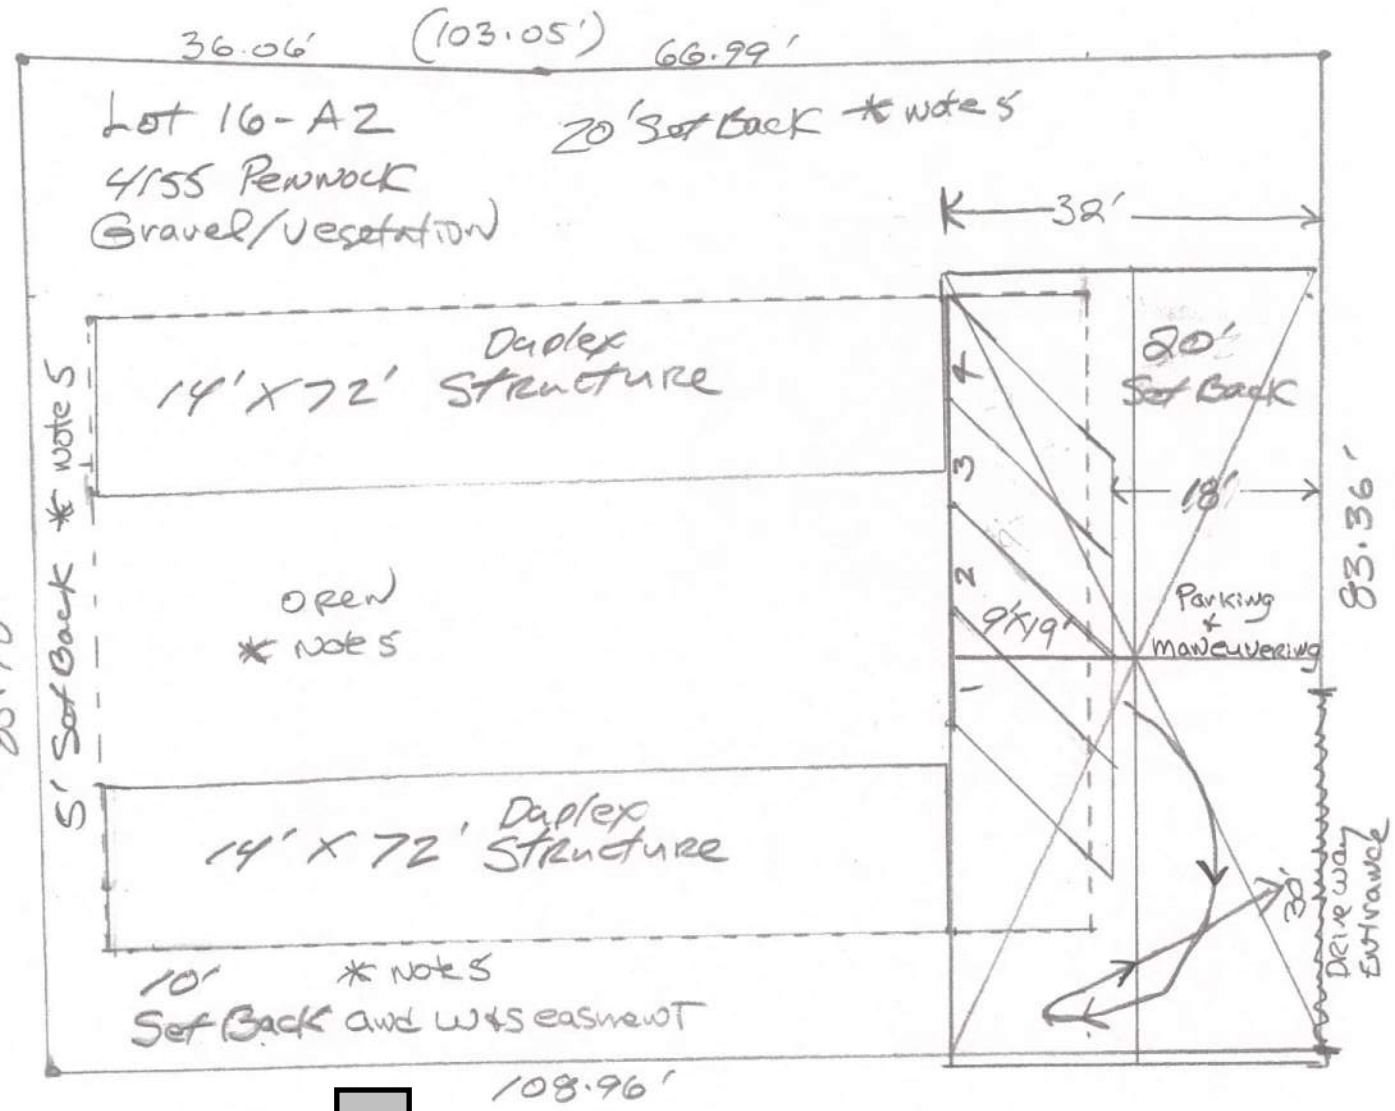 36.06' (103.05') 66.99'
Lot 16-A2
4155 Pennock
Gravel/Vegetation
20' Set Back * Note 5
32'
Duplex
14' X 72' Structure
20'
Set Back
5' Set Back * Note 5
4
3
2
1
18'
83.36'
Open
* Note 5
9'X19'
Parking
&
Maneuvering
Duplex
14' X 72' Structure
30'
Driveway
Entrance
10' * Note 5
Set Back and W&S easmewT
108.96'